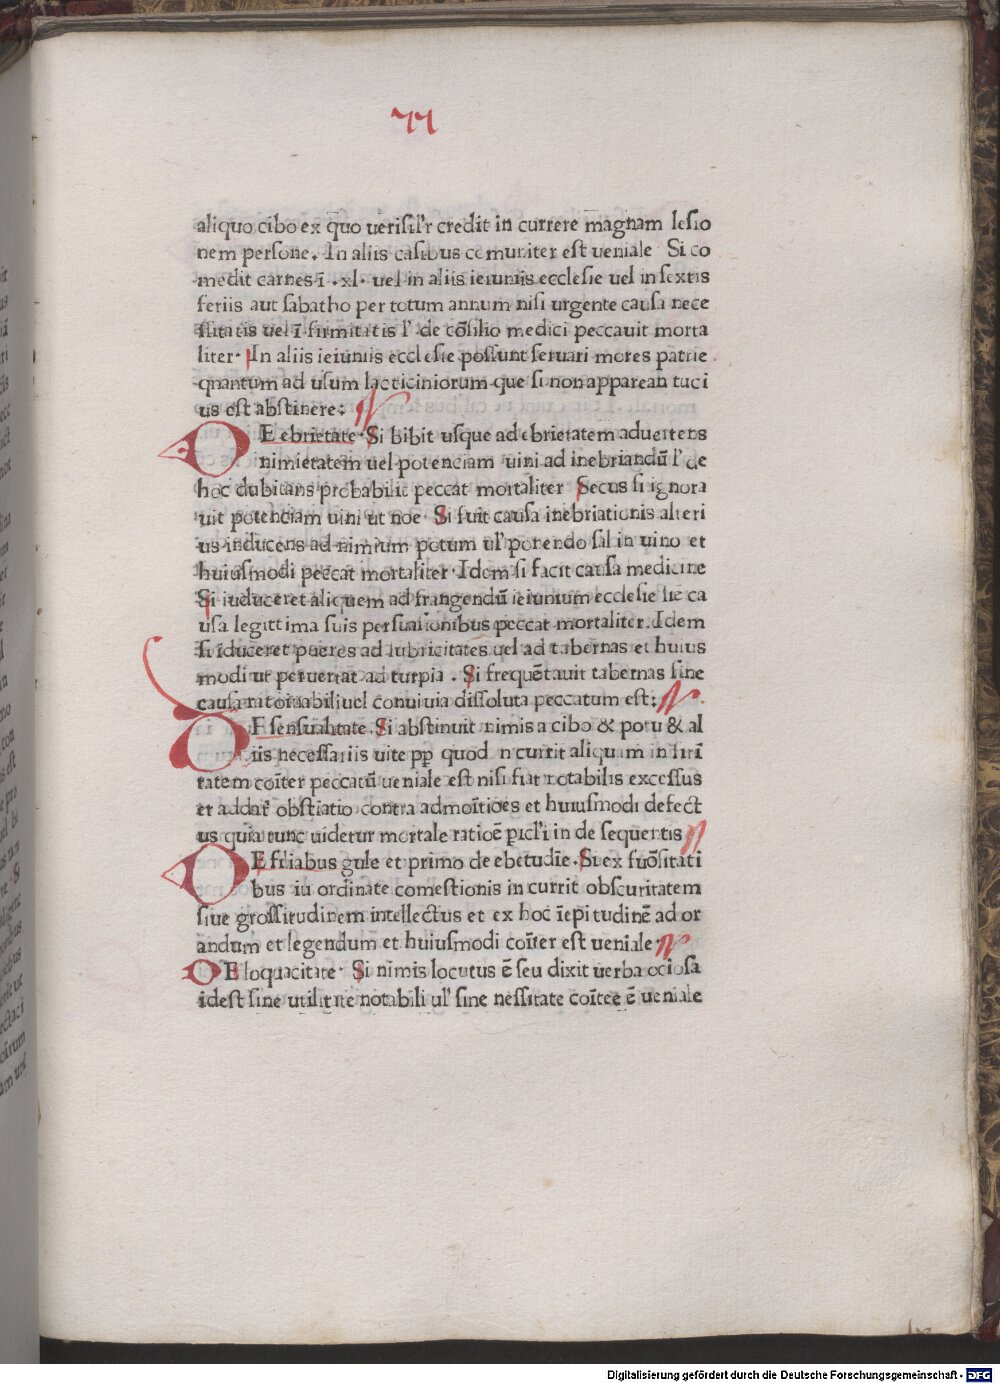 77
aliquo cibo ex quo uerisil'r credit in currere magnam lesio
nem persone. In aliis casibus cemuniter est ueniale Si co
medit carnes ī .xl. uel in aliis ieiuniis ecclesie uel in sextis
feriis aut sabatho per totum annum nisi urgente causa nece
ssitatis uel ī firmitatis l' de cōsilio medici peccauit morta
liter. In aliis ieiuniis ecclesie possunt seruari mores patrie
quantum ad usum lacticiniorum que si non apparean tuci
us est abstinere:
DE ebrietate. Si bibit usque ad ebrietatem aduertens
nimietatem uel potenciam uini ad inebriandū l' de
hoc dubitans probabilit peccat mortaliter Secus si ignora
uit potenciam uini ut noe Si fuit causa inebriationis alteri
us inducens ad nimium potum ul' ponendo sal in uino et
huiusmodi peccat mortaliter. Idem si facit causa medicine
Si iuduceret aliquem ad frangendū ieiunium ecclesie sie ca
usa legittima suis persuasionibus peccat mortaliter. Idem
si īduceret pueres ad lubricitates uel ad tabernas et huius
modi ut peruertat ad turpia . Si frequētauit tabernas sine
causa rationabili uel conuiuia dissoluta peccatum est:
DE sensualitate. Si abstinuit nimis a cibo & potu & al
iis necessariis uite pp quod n currit aliquam in firī
tatem coīter peccatū ueniale est nisi fiat notabilis excessus
et addat' obstīatio contra admoītiōes et huiusmodi defect
us quia tunc uidetur mortale ratiōē picl'i in de sequentis
DE filiabus gule et primo de ebetudīe. Si ex suōsitati
bus iu ordinate comestionis in currit obscuritatem
siue grossitudinem intellectus et ex hoc īepitudinē ad or
andum et legendum et huiusmodi coīter est ueniale
DE loquacitate. Si nimis locutus ē seu dixit uerba ociosa
idest sine utilitate notabili ul' sine nessitate coītee ē ueniale
Digitalisierung gefördert durch die Deutsche Forschungsgemeinschaft - DFG